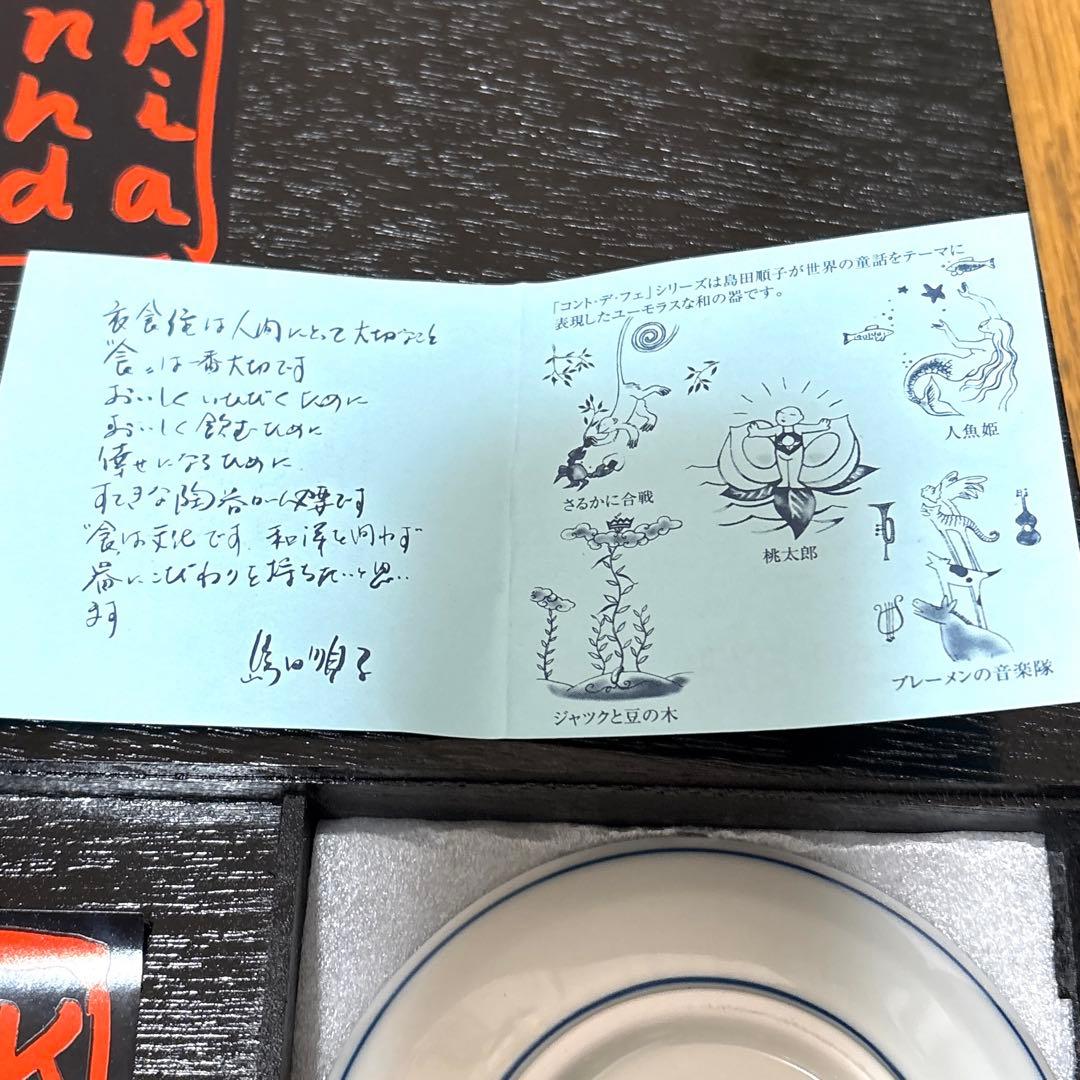 n K
h i
d a
衣食住は人間にとって大切なこと
"食"は一番大切です
おいしくいただくために
おいしく飲むために
倖せになるために
すてきな陶器が必要です
"食"は文化です 和洋を問わず
器にこだわりを持ちたいと思い
ます
島田順子
「コント・デ・フェ」シリーズは島田順子が世界の童話をテーマに
表現したユーモラスな和の器です。
人魚姫
さるかに合戦
桃太郎
ブレーメンの音楽隊
ジャックと豆の木
K